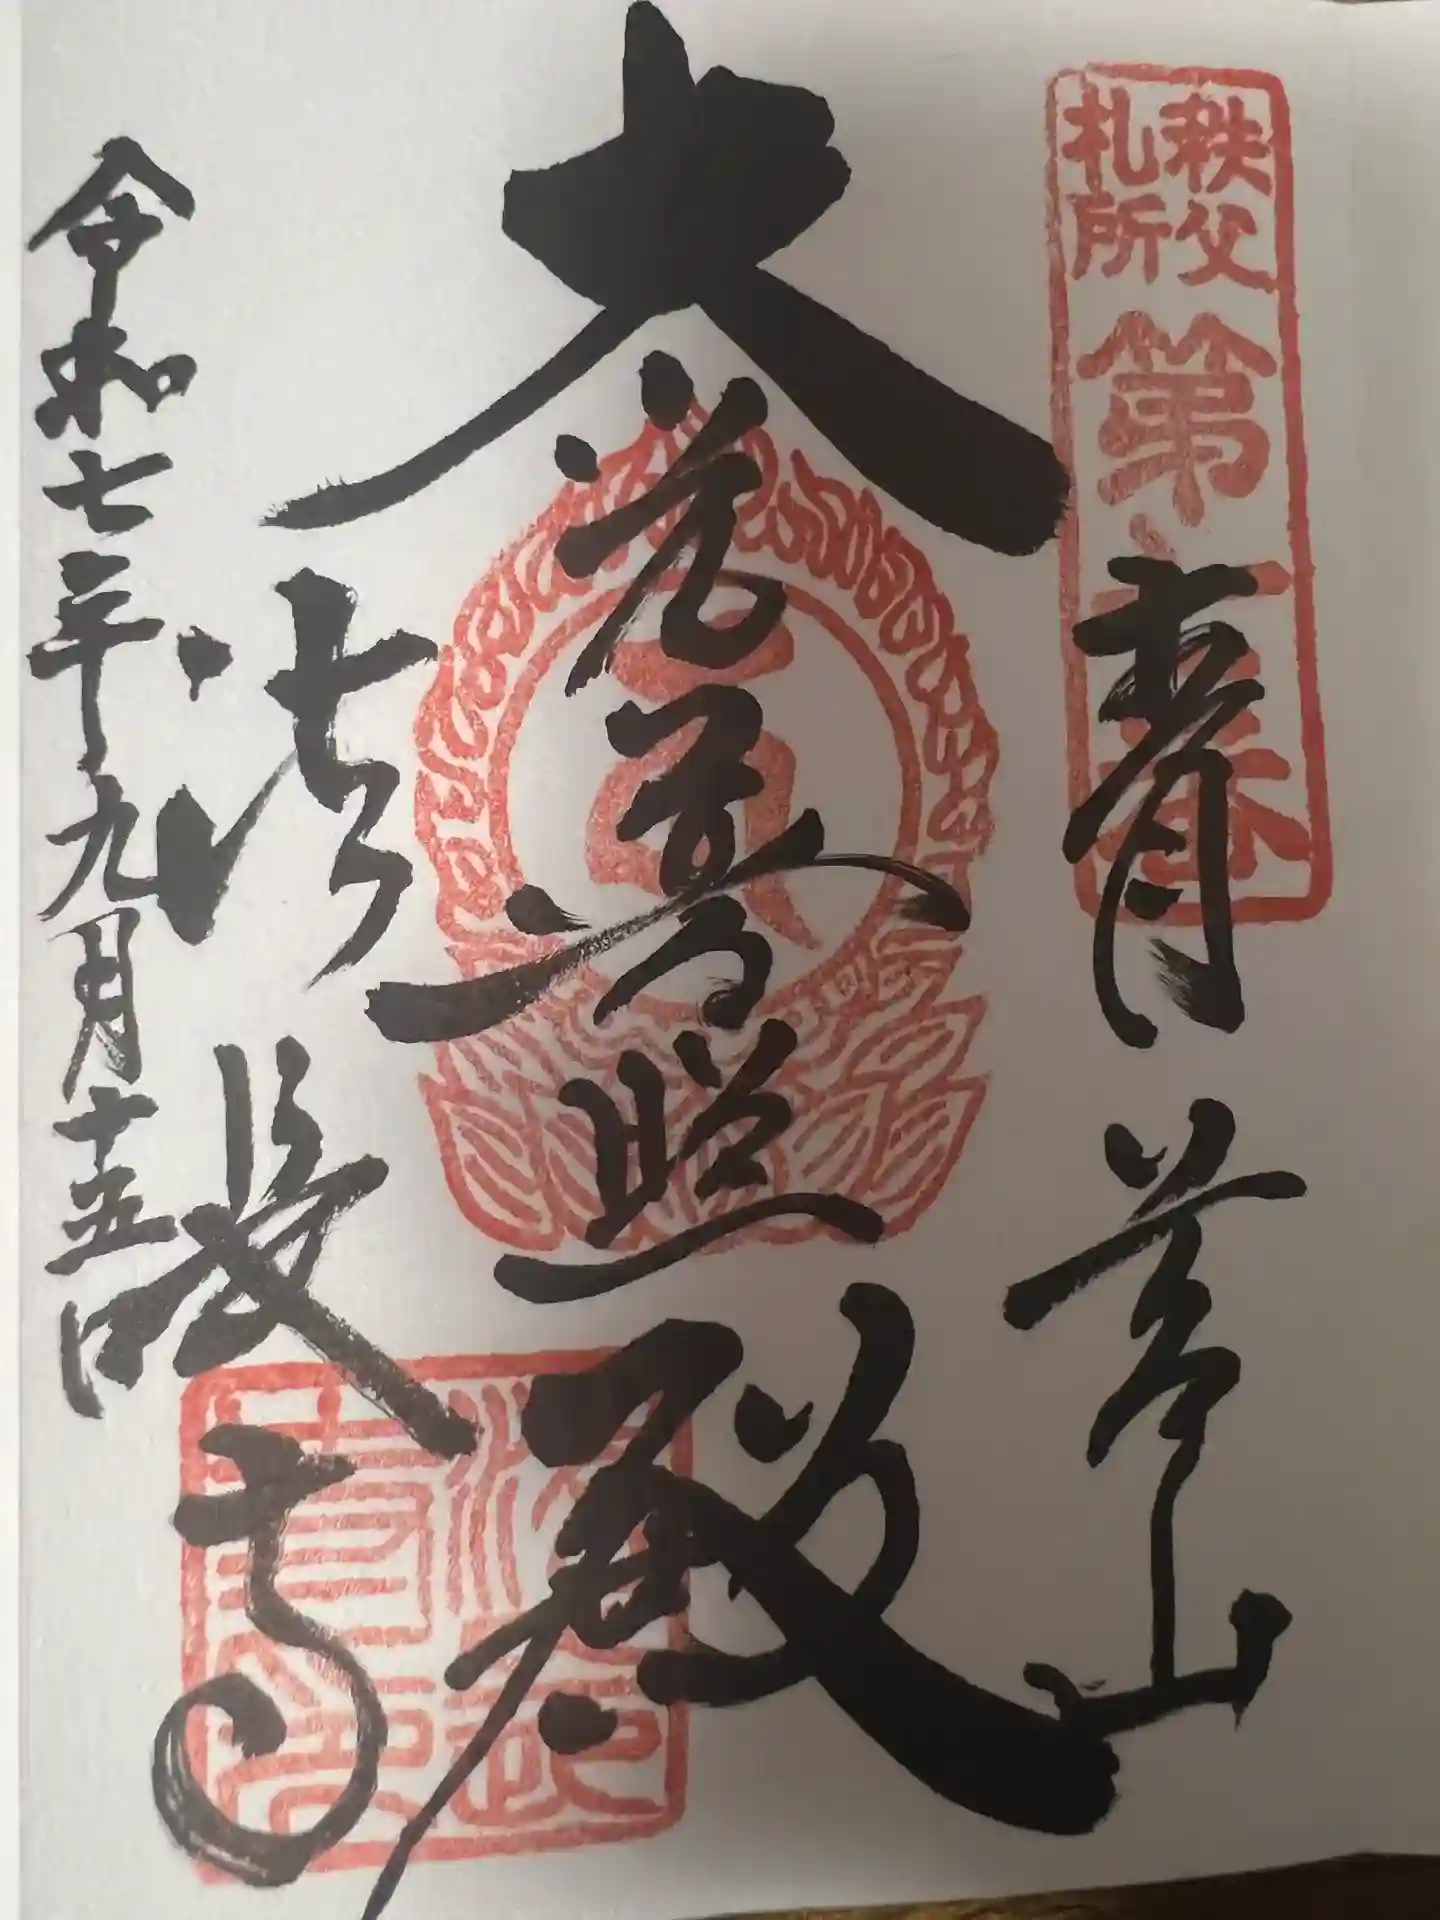 秩父
札所
第七番
青苔山
大光普照殿
法長寺
令和七年九月十五日